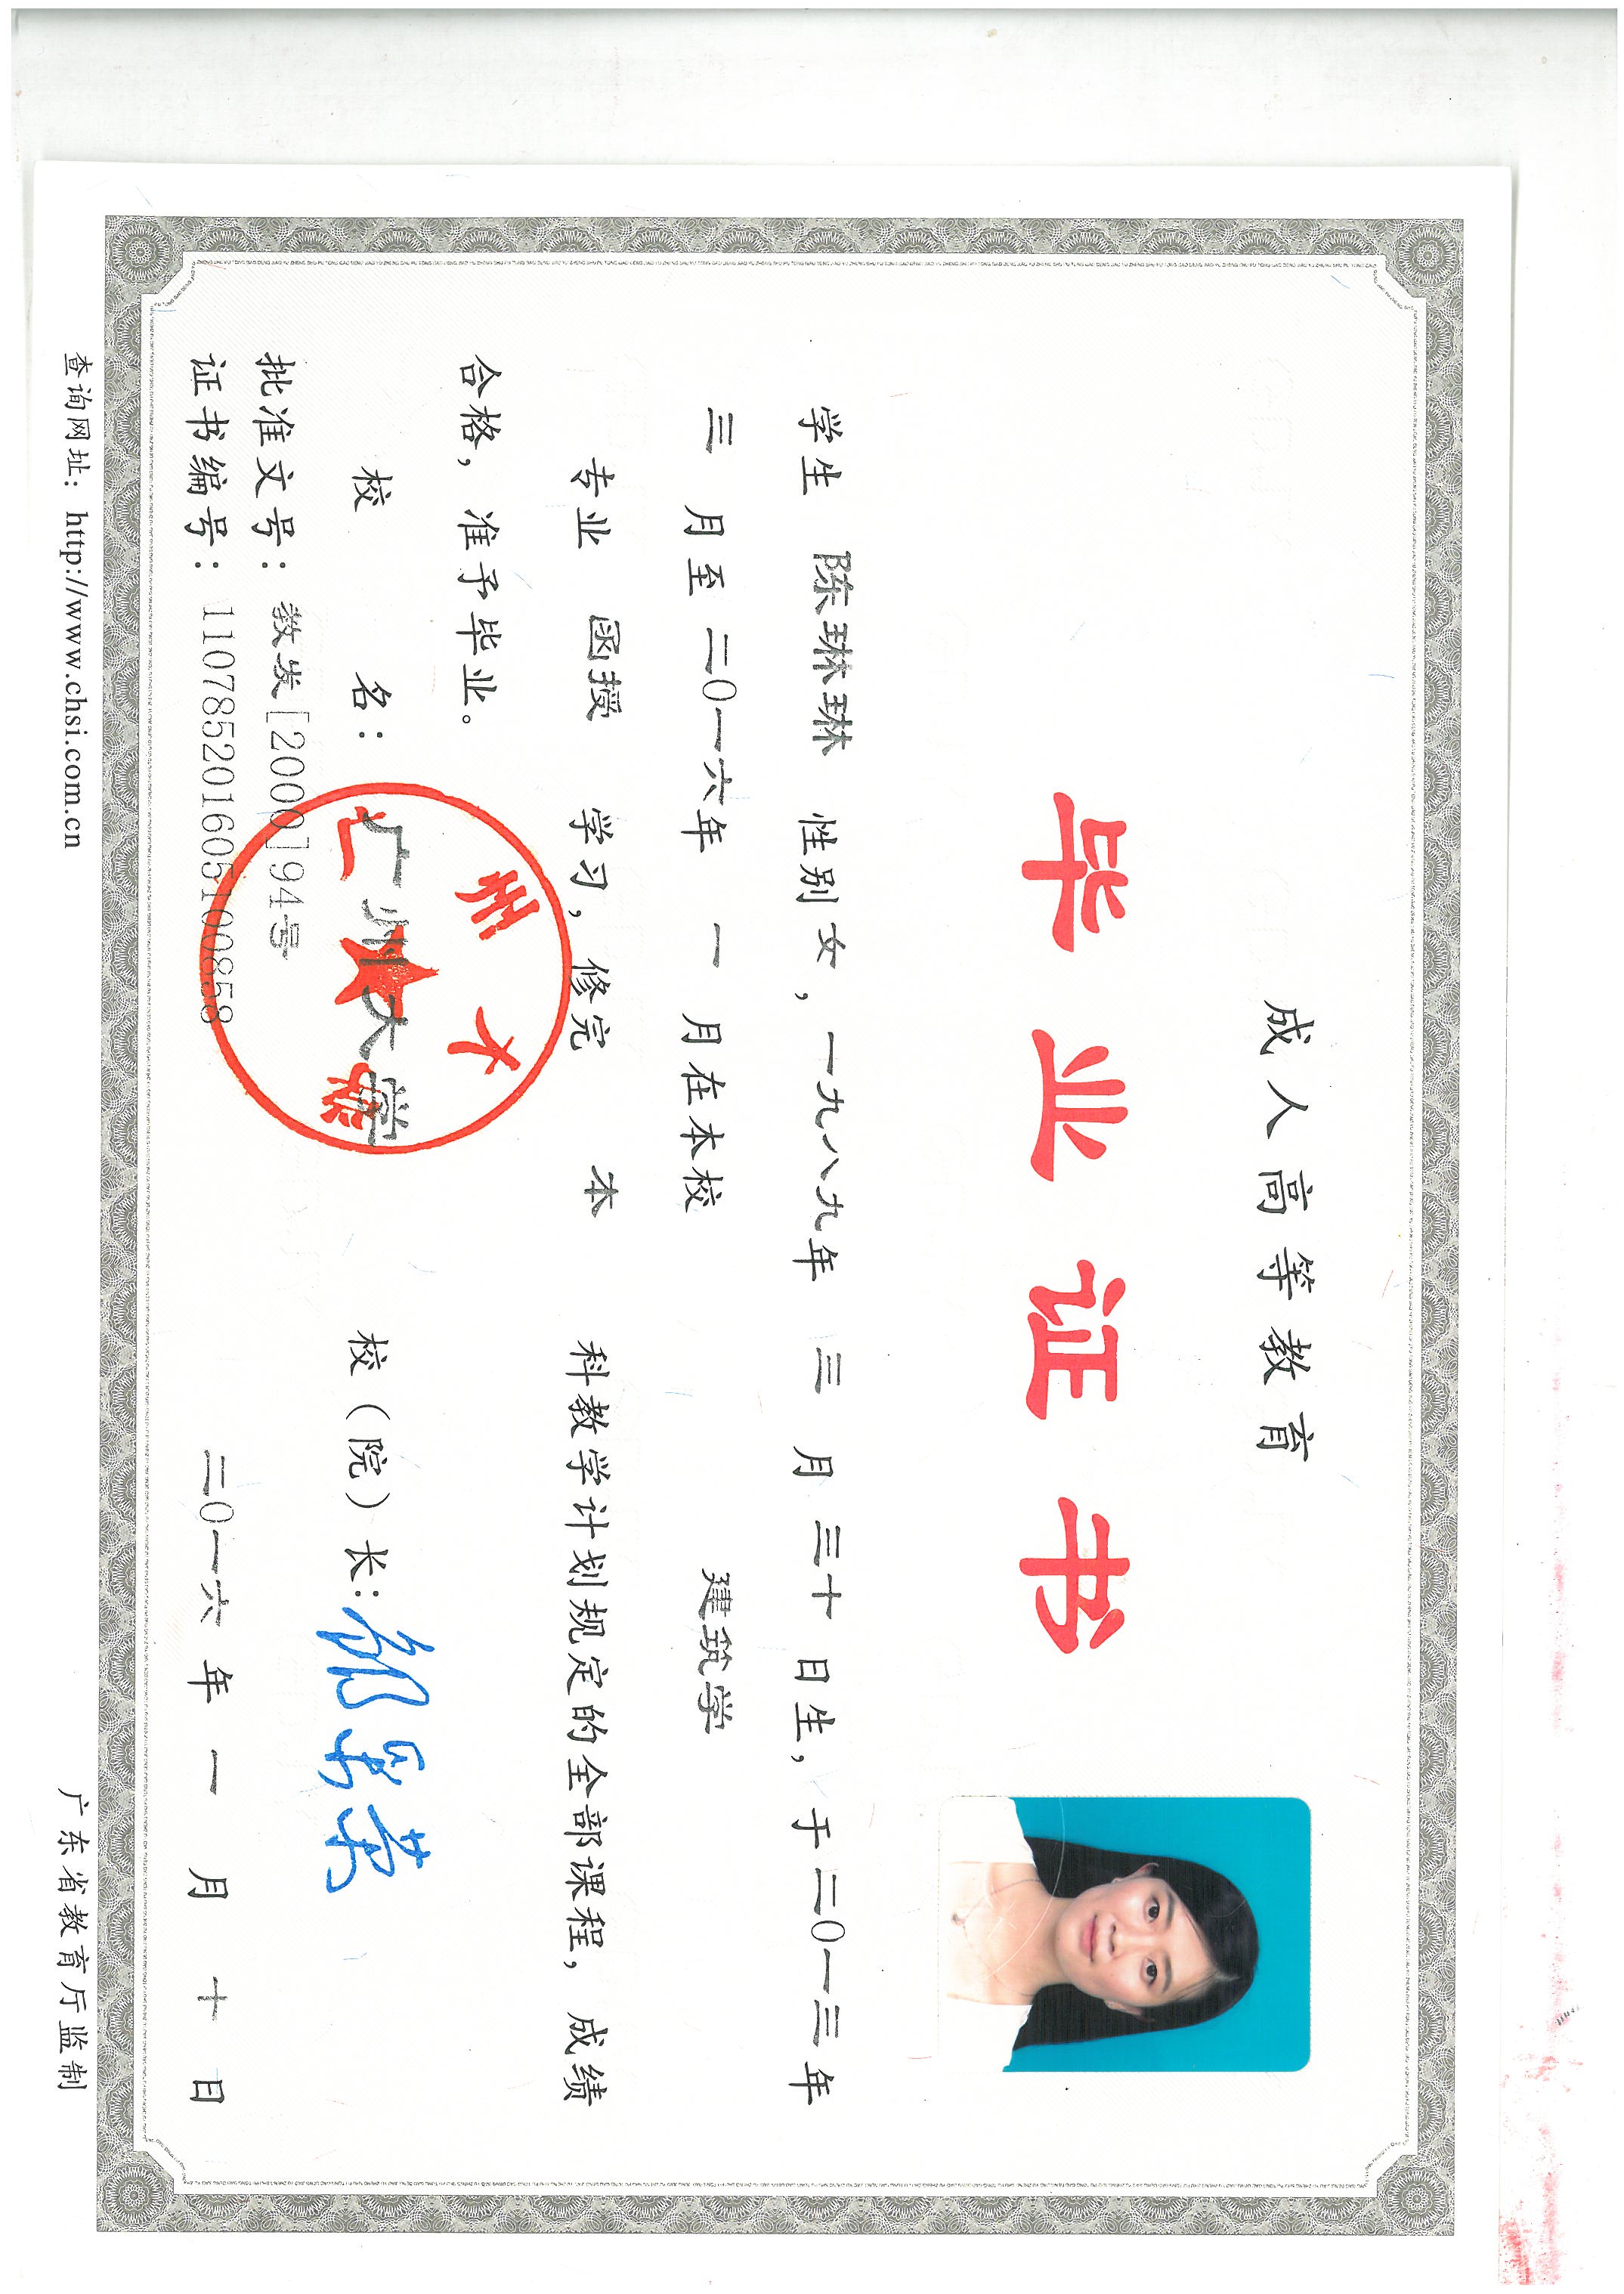 成人高等教育
毕业证书
学生 陈琳琳 性别女，一九八九年 三 月 三十 日生，于二〇一三年
三 月至 二〇一六年 一 月在本校 建筑学
专业 函授 学习，修完 本 科教学计划规定的全部课程，成绩
合格，准予毕业。
校 名：广州大学 校（院）长：
批准文号：教发[2000]94号
证书编号：110785201605100858 二〇一六 年 一 月 十 日
查询网址：http://www.chsi.com.cn 广东省教育厅监制